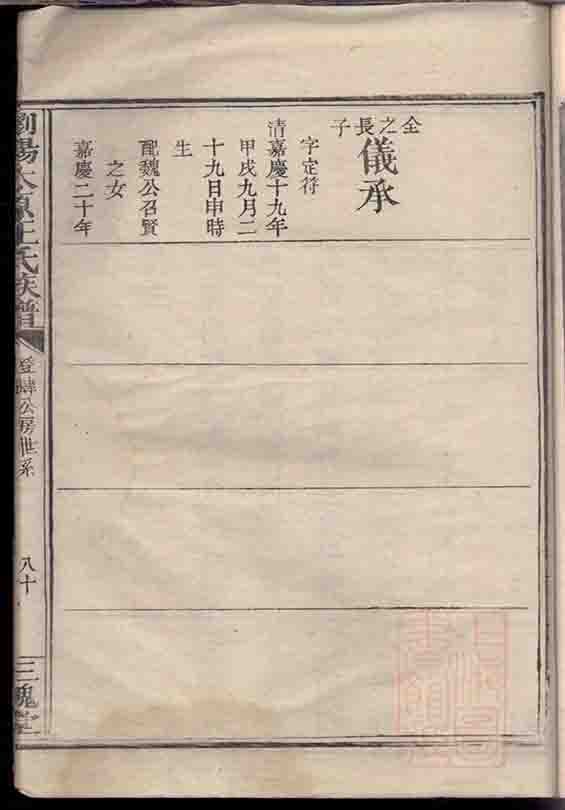 全之長子
儀承
字定符
清嘉慶十九年
甲戌九月二
十九日申時
生
配魏公召賢
之女
嘉慶二十年
瀏陽太原王氏族譜
登肆公房世系
八十
三槐堂
上海圖書館藏